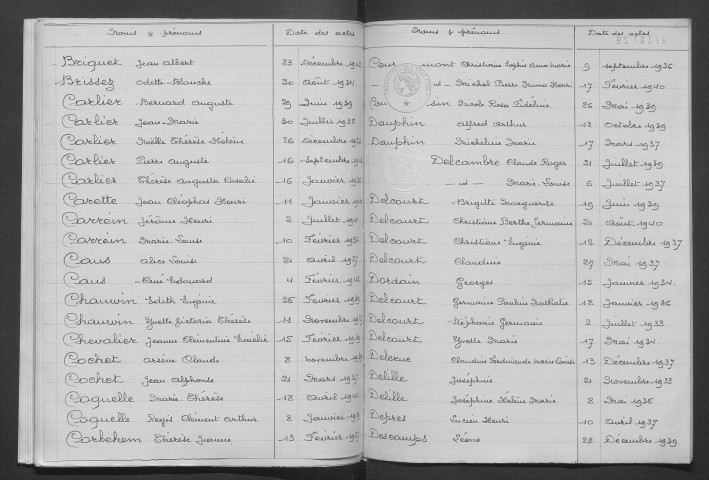 Noms & prénoms Date des actes
Briquet Jean Albert 23 Décembre
Brissez Odette Blanche 30 Août 1934
Carlier Bernard Auguste 29 Juin 1939
Carlier Jean-Marie 30 Juillet 1928
Carlier Thérèse Hélène 26 Décembre
Carlier Pierre Auguste 16 Septembre
Carlier Thérèse Augusta Rosalie 16 Janvier
Carette Jean Cléophas Henri 11 Janvier
Carrein Jérôme Henri 2 Juillet
Carrein Marie-Louise 10 Février
Caus Alice Louise 21 Avril 1937
Caus René Edouard 4 Février
Chauwin Edith Eugénie 25 Février
Chauwin Yvette Victoria Thérèse 11 Novembre
Chevalier Jeanne Clémentine Emélie 15 Février
Cochet Arsène Claude 8 Novembre
Cochet Jean Alphonse 21 Mars
Coquelle Marie-Thérèse 18 Avril
Coquelle Régis Clément Arthur 8 Janvier
Corbehem Thérèse Jeanne 13 Février
Noms & prénoms Date des actes
mont Christiane Sophie Anna Marie 9 Septembre 1936
-d- Michel Pierre Henri 17 Février 1940
Nicole Rose Fidéline 26 Mai 1939
Dauphin Alfred Arthur 12 Octobre 1939
Dauphin Micheline Marie 17 Mars 1937
Delcambre Claude Roger 21 Juillet 1939
-d- Marie-Louise 6 Juillet 1937
Delcourt Brigitte Marguerite 19 Juin 1939
Delcourt Christiane Berthe Germaine 21 Août 1940
Delcourt Christiane Eugénie 12 Décembre 1937
Delcourt Claudine 27 Mai 1937
Dordain Georges 15 Janvier 1934
Delcourt Germaine Pauline Nathalie 18 Janvier 1936
Delcourt Stéphanie Germaine 2 Juillet 1933
Delcourt Yvette Marie 17 Mai 1934
Delerue Claudine Ferdinande Marie Louise 13 Décembre 1937
Delille Joséphine 21 Novembre 1933
Delille Joséphine Hélène Marie 8 Mai 1936
Deprez Lucien Henri 10 Avril 1937
Descamps Léone 28 Décembre 1939